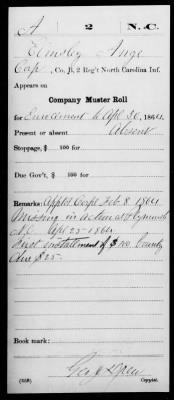 A 2 N.C.
Ange
Capt, Co. , 2 Reg't North Carolina Inf.
Appears on
Company Muster Roll
for Enrollment to Apl 30, 1864.
Present or absent Absent
Stoppage, $ 100 for
Due Gov't, $ 100 for
Remarks: Appt'd Capt Feb 8 1864
Missing in action at Plymouth
N.C. Apl 25 1864
First installment of $100 bounty
due $25.
Book mark:
(358) Copyist.